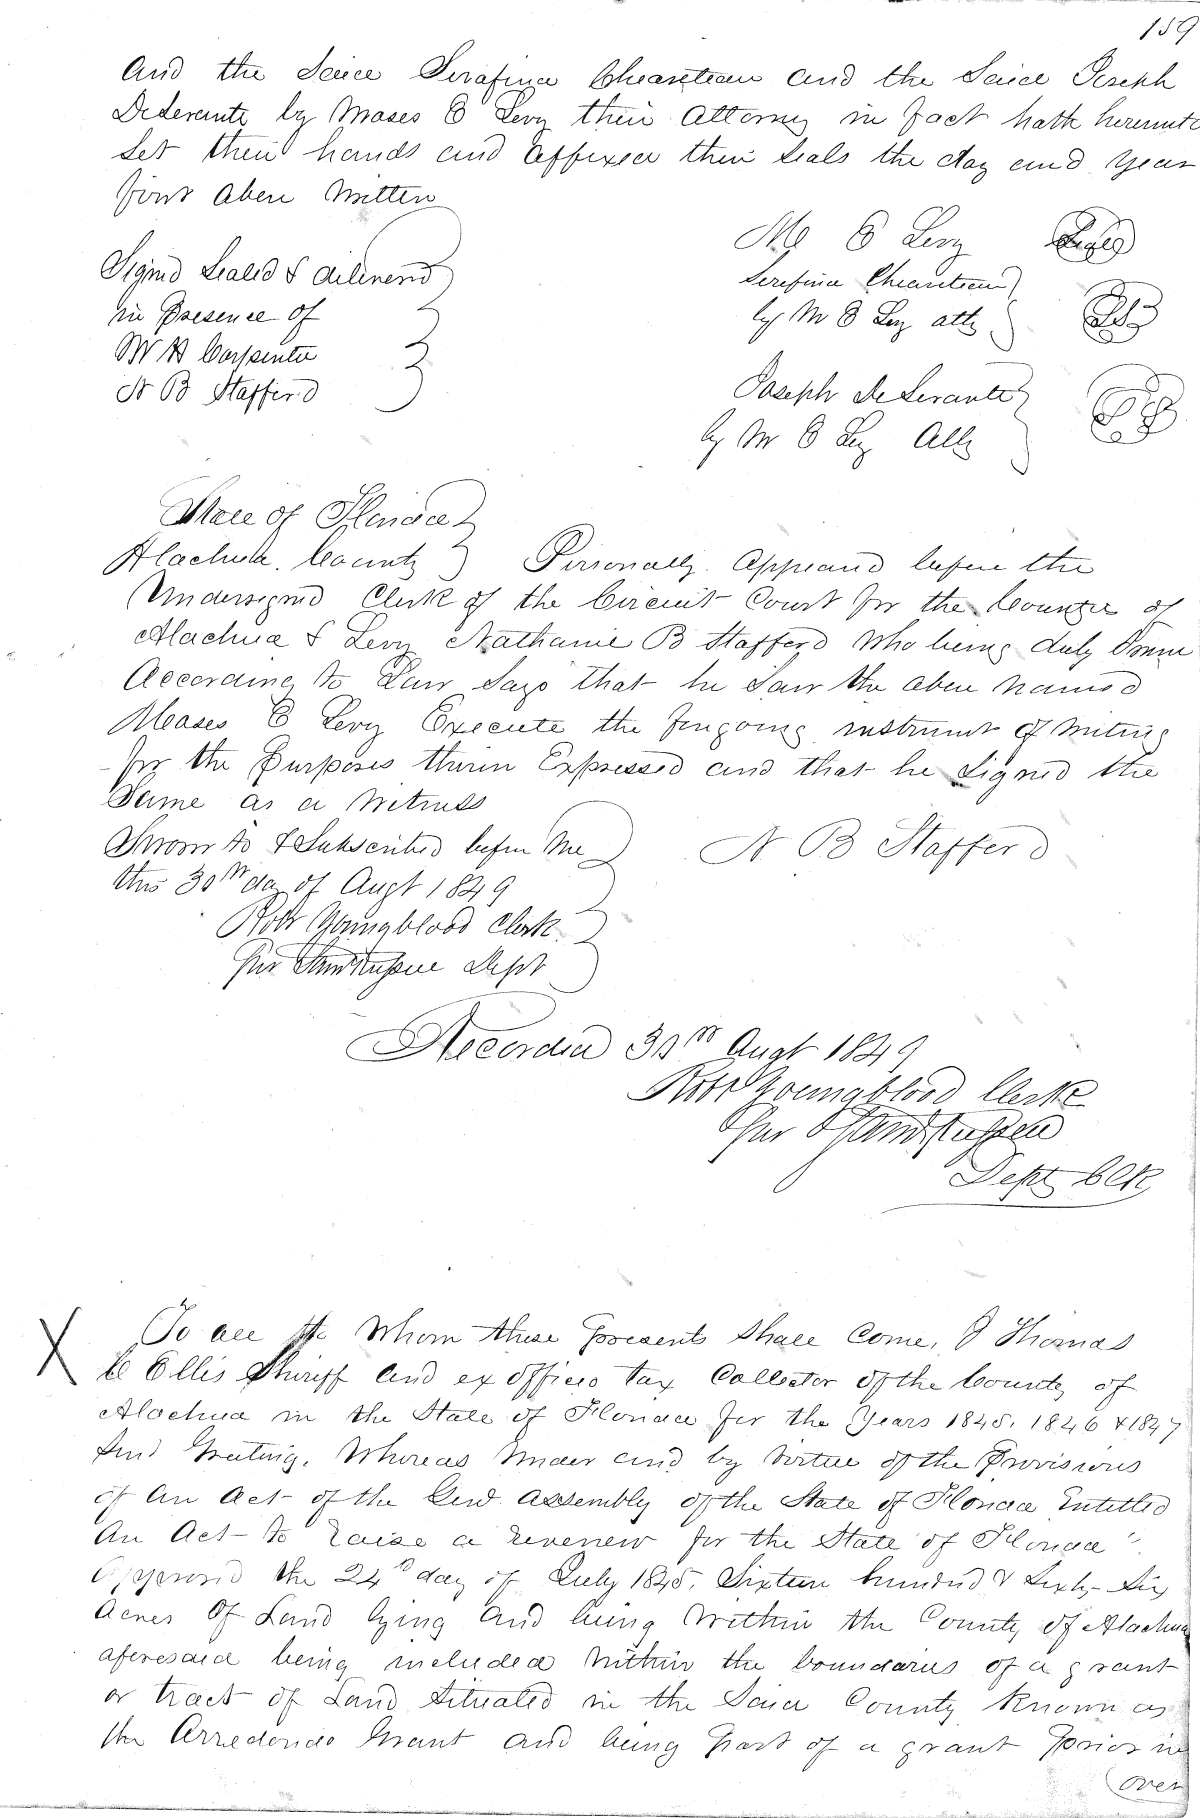 159
And the Saice Serafina Cheauteau and the Saice Joseph
DeSerante by Moses E Levy their Attorney in fact hath hereunto
Set their hands and affixed their seals the day and year
first above Written
Signd Sealed & delivered
in Presence of
W H Carpenter
N B Stafford
M E Levy Seal
Serefina Cheauteau
by M E Levy atty
Joseph DeSerante
by M E Levy Atty
State of Florida
Alachua County Personally appeared before the
Undersigned Clerk of the Circuit Court for the County of
Alachua & Levy Nathaniel B Stafford Who being duly Sworn
According to Law Says that he Saw the above named
Moases E Levy Execute the forgoing instrument of writing
for the Purposes therin Expressed and that he Signed the
Same as a Witness
Sworn to & Subscribed before Me
this 30th day of Augt 1849
N B Stafford
Robt Youngblood Clerk
Pur Dept
Recorded 30th Augt 1849
Robt Youngblood Clerk
Pur
Dept Clk
X To all to Whom these Presents Shall Come, I Thomas
C Ellis Shiriff and ex officio tax Collector of the County of
Alachua in the State of Florida for the Years 1845, 1846 & 1847
Send Greeting, Whereas Under and by Virtue of the Provisions
of An Act of the Genl Assembly of the State of Florida Entitled
An Act to raise a revenew for the State of Florida"
Approved the 24th day of July 1845, Sixteen hundred & Sixty Six
Acres Of Land lying and being Within the County of Alachua
aforesaid being included Within the boundaries of a grant
or tract of Land Situated in the Said County Known as
the Arredondo Grant and being Part of a grant Prior in
(over